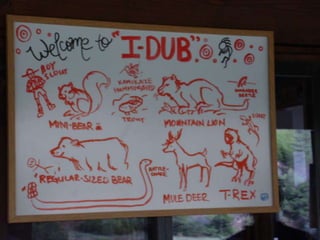 Welcome to "I-DUB"
BOY
SCOUT
KAMIKAZE
HUMMINGBIRDS
MINI-BEAR
TROUT
MOUNTAIN LION
REGULAR-SIZED BEAR
RATTLE-
SNAKE
MULE DEER
T-REX